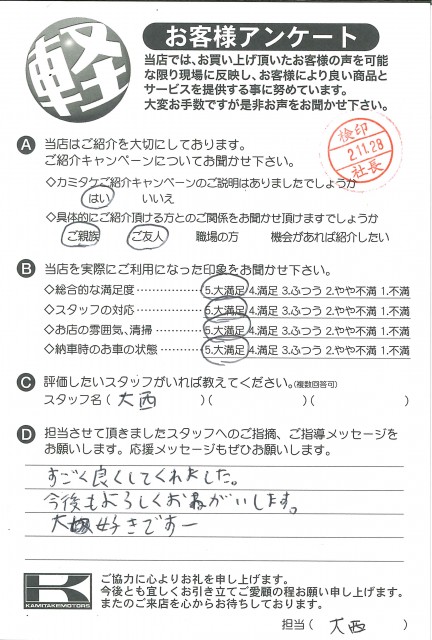 軽
お客様アンケート
当店では、お買い上げ頂いたお客様の声を可能
な限り現場に反映し、お客様により良い商品と
サービスを提供する事に努めています。
大変お手数ですが是非お声をお聞かせ下さい。
A 当店はご紹介を大切にしております。
ご紹介キャンペーンについてお聞かせ下さい。
検印
2.11.28
社長
◇カミタケご紹介キャンペーンのご説明はありましたでしょうか
はい いいえ
◇具体的にご紹介頂ける方とのご関係をお聞かせ頂けますでしょうか
ご親族 ご友人 職場の方 機会があれば紹介したい
B 当店を実際にご利用になった印象をお聞かせ下さい。
◇総合的な満足度…………5.大満足 4.満足 3.ふつう 2.やや不満 1.不満
◇スタッフの対応…………5.大満足 4.満足 3.ふつう 2.やや不満 1.不満
◇お店の雰囲気、清掃……5.大満足 4.満足 3.ふつう 2.やや不満 1.不満
◇納車時のお車の状態……5.大満足 4.満足 3.ふつう 2.やや不満 1.不満
C 評価したいスタッフがいれば教えてください。(複数回答可)
スタッフ名( 大西 )( )( )
D 担当させて頂きましたスタッフへのご指摘、ご指導メッセージを
お願いします。応援メッセージもぜひお願いします。
すごく良くしてくれました。
今後もよろしくおねがいします。
大好きですー
K
KAMITAKEMOTORS
ご協力に心よりお礼を申し上げます。
今後とも宜しくお引き立てご愛顧の程お願い申し上げます。
またのご来店を心からお待ちしております。
担当( 大西 )